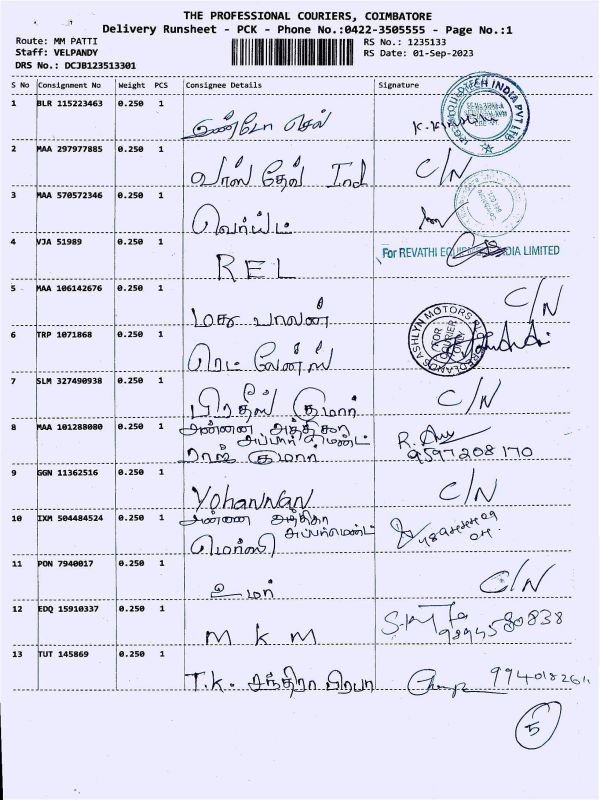 THE PROFESSIONAL COURIERS, COIMBATORE
Delivery Runsheet - PCK - Phone No.:0422-3505555 - Page No.:1
Route: MM PATTI
RS No.: 1235133
Staff: VELPANDY
RS Date: 01-Sep-2023
DRS No.: DCJB123513301
S No Consignment No Weight PCS Consignee Details Signature
1 BLR 115223463 0.250 1
2 MAA 297977885 0.250 1 வாஸ தேவ் Ind C/N
3 MAA 570572346 0.250 1
4 VJA 51989 0.250 1 REL For REVATHI INDIA LIMITED
5 MAA 106142676 0.250 1 மது பாலன் C/N
6 TRP 1071868 0.250 1 ASHLYN MOTORS FOR COURIER ONLY
7 SLM 327490938 0.250 1 பிரதீஸ் குமார் C/N
8 MAA 101288080 0.250 1 அன்னை
ராஜ் குமார் 9597208170
9 GGN 11362516 0.250 1 Yohannan C/N
10 IXM 504484524 0.250 1 அன்னை
மெர்ஸி
11 PON 7940017 0.250 1 உமர் C/N
12 EDQ 15910337 0.250 1 M K M 9894580838
13 TUT 145869 0.250 1 T.K. சந்திர பிரபா
5